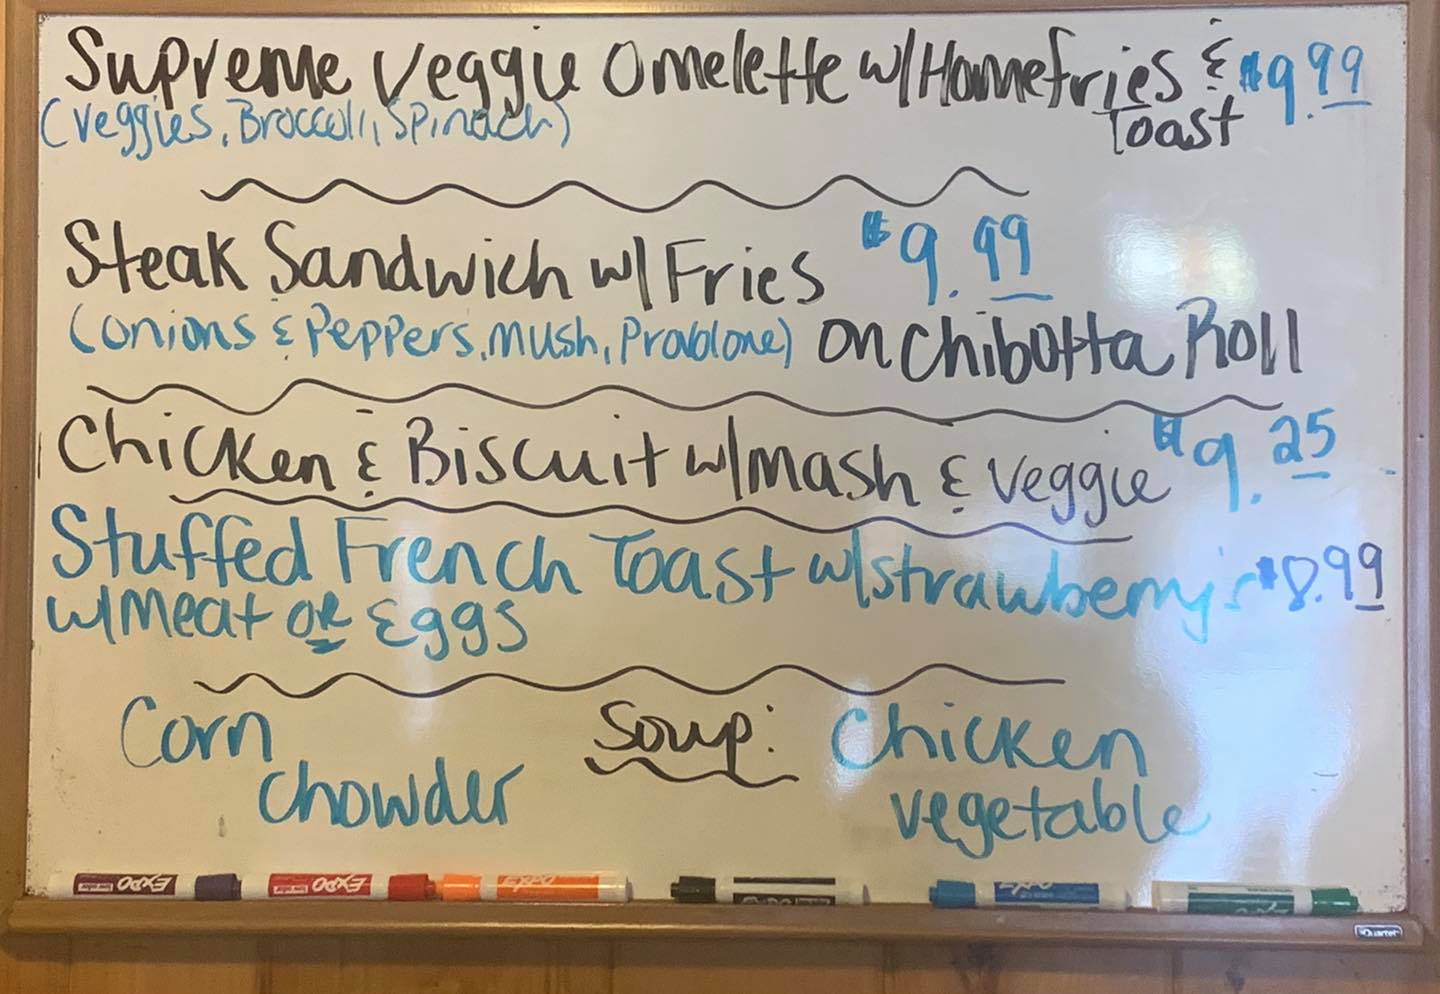 Supreme Veggie Omelette w/Homefries & $9.99
Toast
(Veggies, Broccoli, Spinach)
Steak Sandwich w/ Fries $9.99
(Onions & Peppers, Mush, Provolone) on Chibotta Roll
Chicken & Biscuit w/mash & Veggie $9.25
Stuffed French Toast w/strawberry's $8.99
w/Meat or Eggs
Soup:
Corn
Chowder
Chicken
vegetable
EXPO
EXPO
EXPO
EXPO
EXPO
EXPO
Quartet